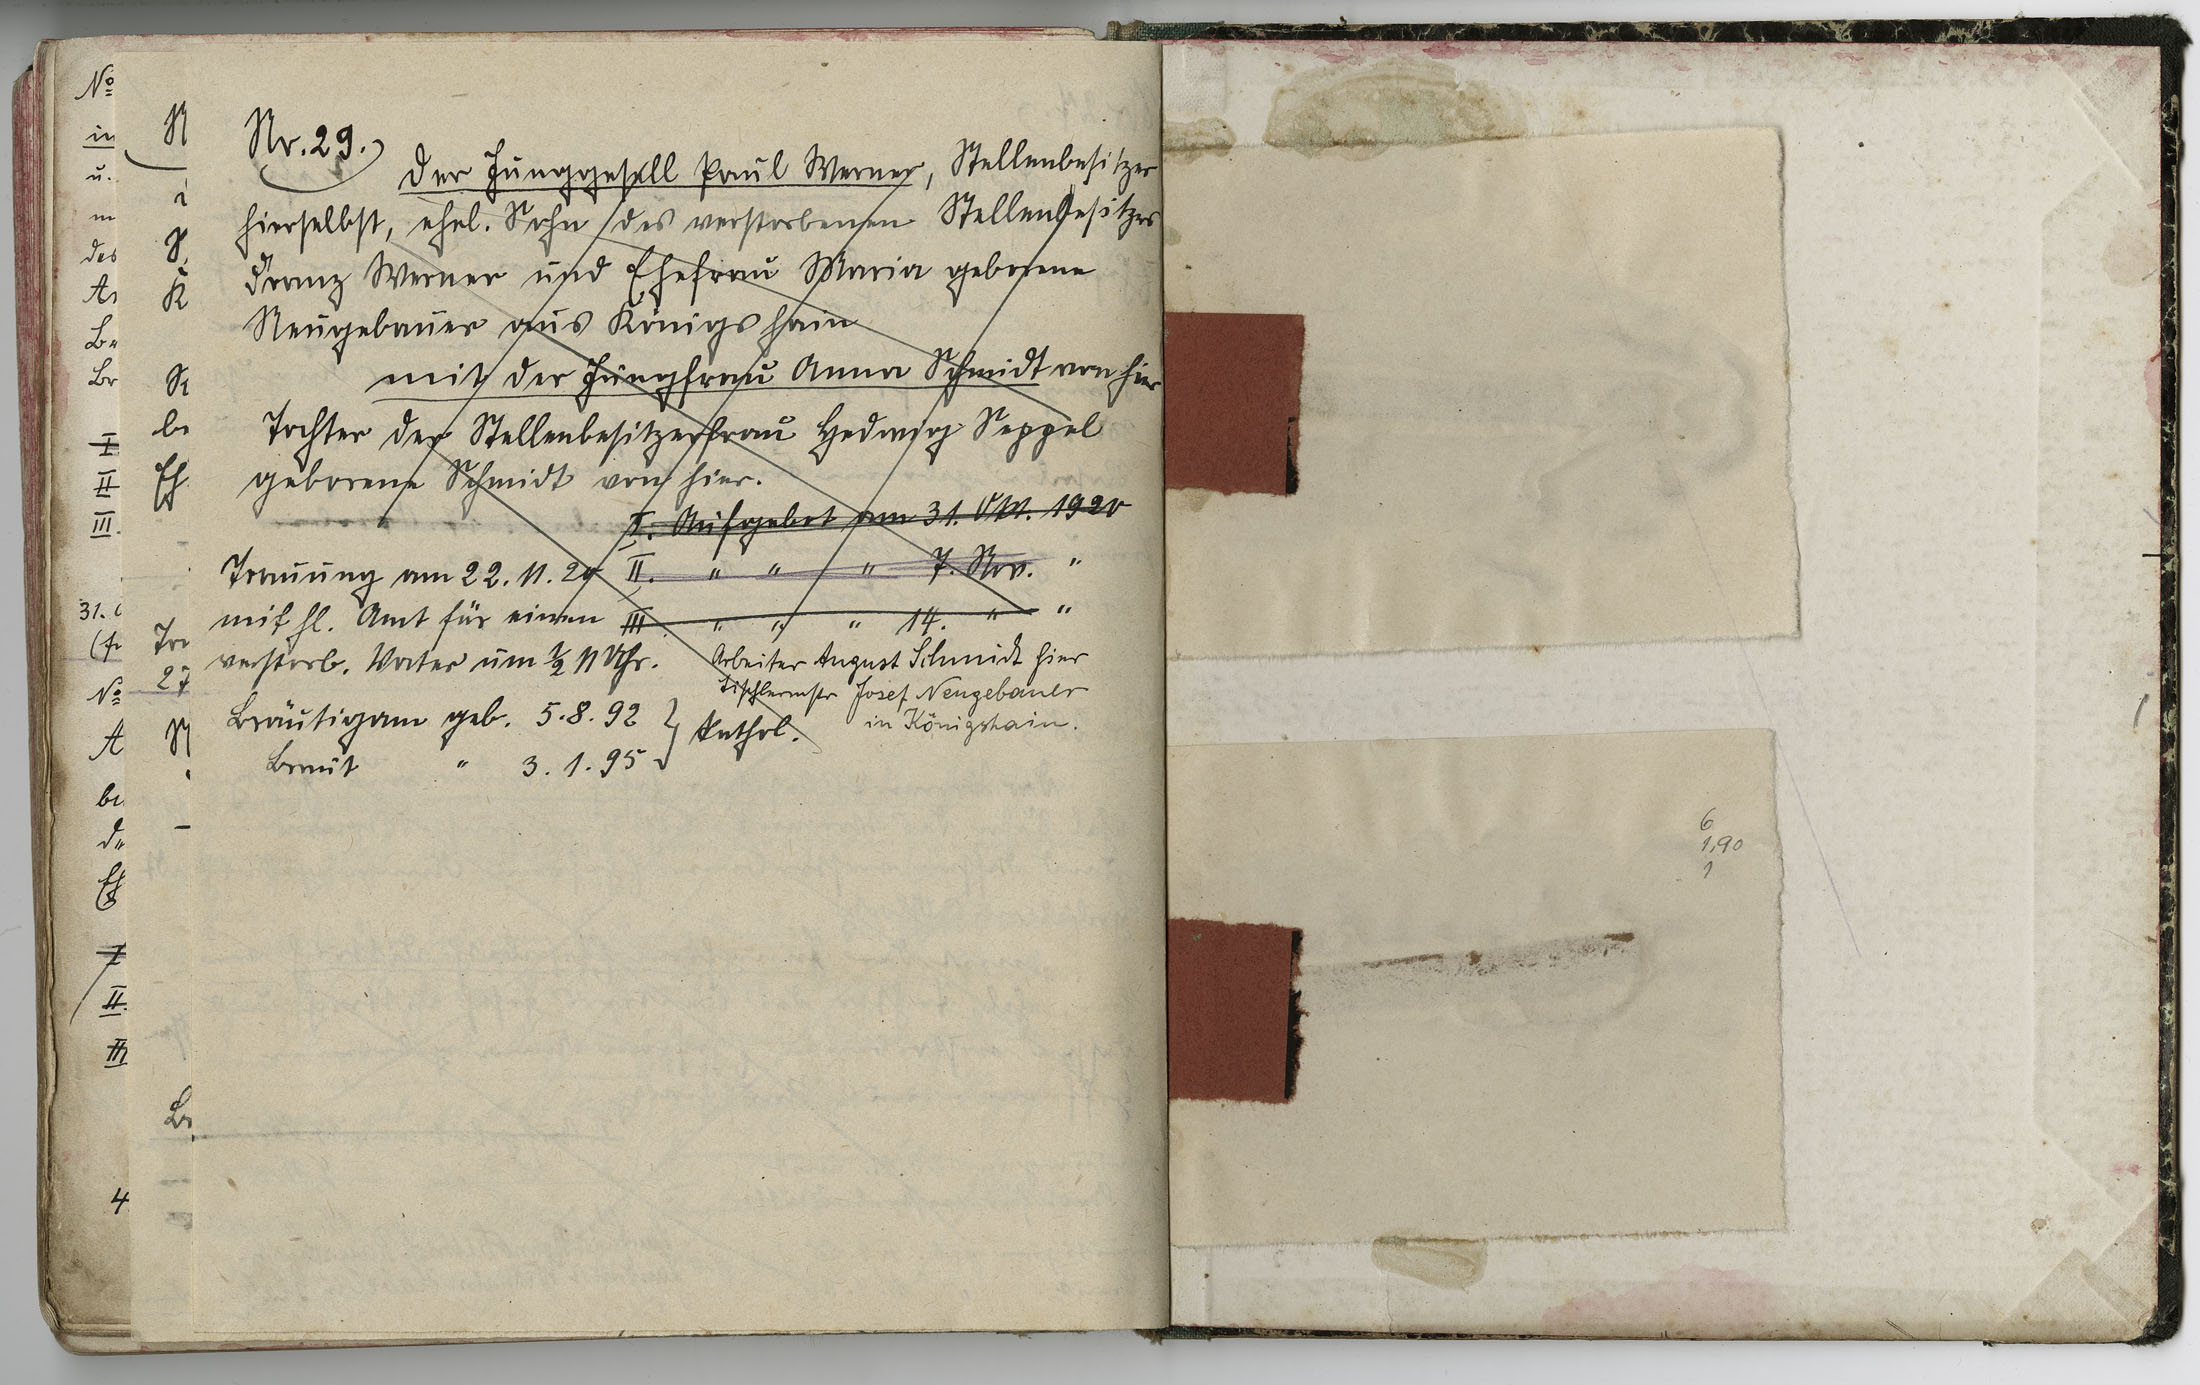 Nr. 29.
Der Junggesell Paul Werner, Stellenbesitzer
hierselbst, ehel. Sohn des verstorbenen Stellenbesitzers
Franz Werner und Ehefrau Maria geborene
Neugebauer aus Königshain
mit der Jungfrau Anna Schmidt von hier
Tochter der Stellenbesitzerfrau Hedwig Seppel
geborene Schmidt von hier.
I. Aufgebot am 31. Okt. 1920
II. " " " 7. Nov. "
III. " " " 14. " "
Trauung am 22. 11. 20
mit hl. Amt für einen
verstorb. Vater um ½ 11 Uhr.
Arbeiter August Schmidt hier
Tischlermstr Josef Neugebauer
in Königshain.
Bräutigam geb. 5. 8. 92 } kathol.
Braut " 3. 1. 95
6
1,90
1
No
in
u.
m
des
Ar
Be
Br
I
II
III.
31.
No
A
be
de
Eh
I
II.
III
4
N
K
be
Eh
Tra
27
N
Br